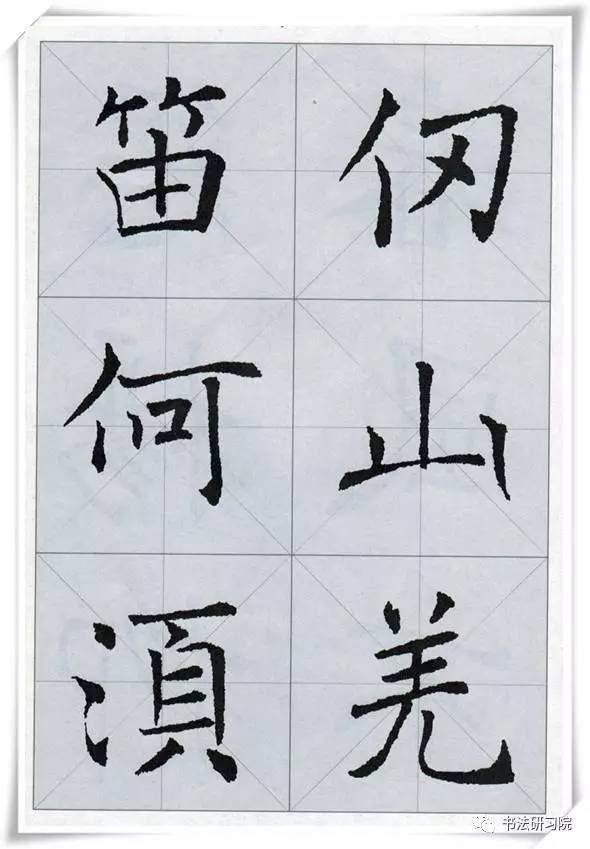 仞山羌
笛何湏
书法研习院